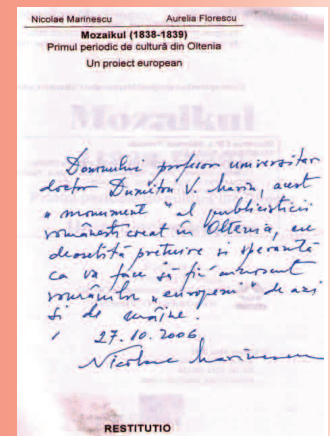 Nicolae Marinescu Aurelia Florescu
Mozaikul (1838-1839)
Primul periodic de cultură din Oltenia
Un proiect european
Mozaikul
Domnului profesor universitar
doctor Dumitru V. Marin, acest
„monument" al publicisticii
românești creat în Oltenia, cu
deosebită prețuire și speranța
ca va face să fie cunoscut
românilor „europeni" de azi
și de mâine.
27.10.2006
Nicolae Marinescu
RESTITUTIO